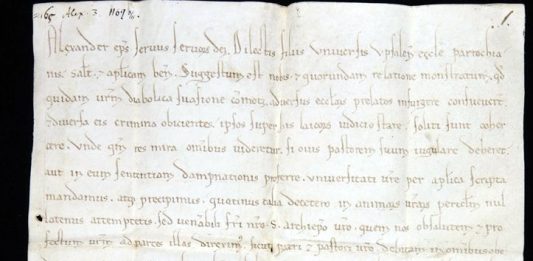 165 Alex. 3. 1.
Alexander eps servus servoꝝ dei. Dilectis filiis universis Upsaleñ ecclē parrochia
nis. salt̄. ⁊ aplicam beñ. Suggestum est nobis ⁊ quorundam relatione monstratum. qđ
quidam vrm̄ diabolica suasione cōmoti. adversus ecclīaꝝ prelatos insurgere consueverīt.
⁊ diversa eis crimina obicientes. ipsos super his laicoꝝ iudicio stare. soliti sunt coher
cere. Unde qm̄ res mira omnibus videretur. si ovis pastorem suum iugulare deberet.
aut in eum sententiam dampnationis proferre. universitati vre per aplica scripta
mandamus. atqꝫ precipimus. quatinus talia decetero. in animaꝝ vr̄aꝝ periclm̄ nul
latenus attemptetis. sed venerabili fr̄i nr̄o. S. archiepo vr̄o. quem nos ob salutem ⁊ pro
fectum vrm̄ ad partes illas direximꝰ. sicut patri ⁊ pastori vr̄o debitam in omnibus